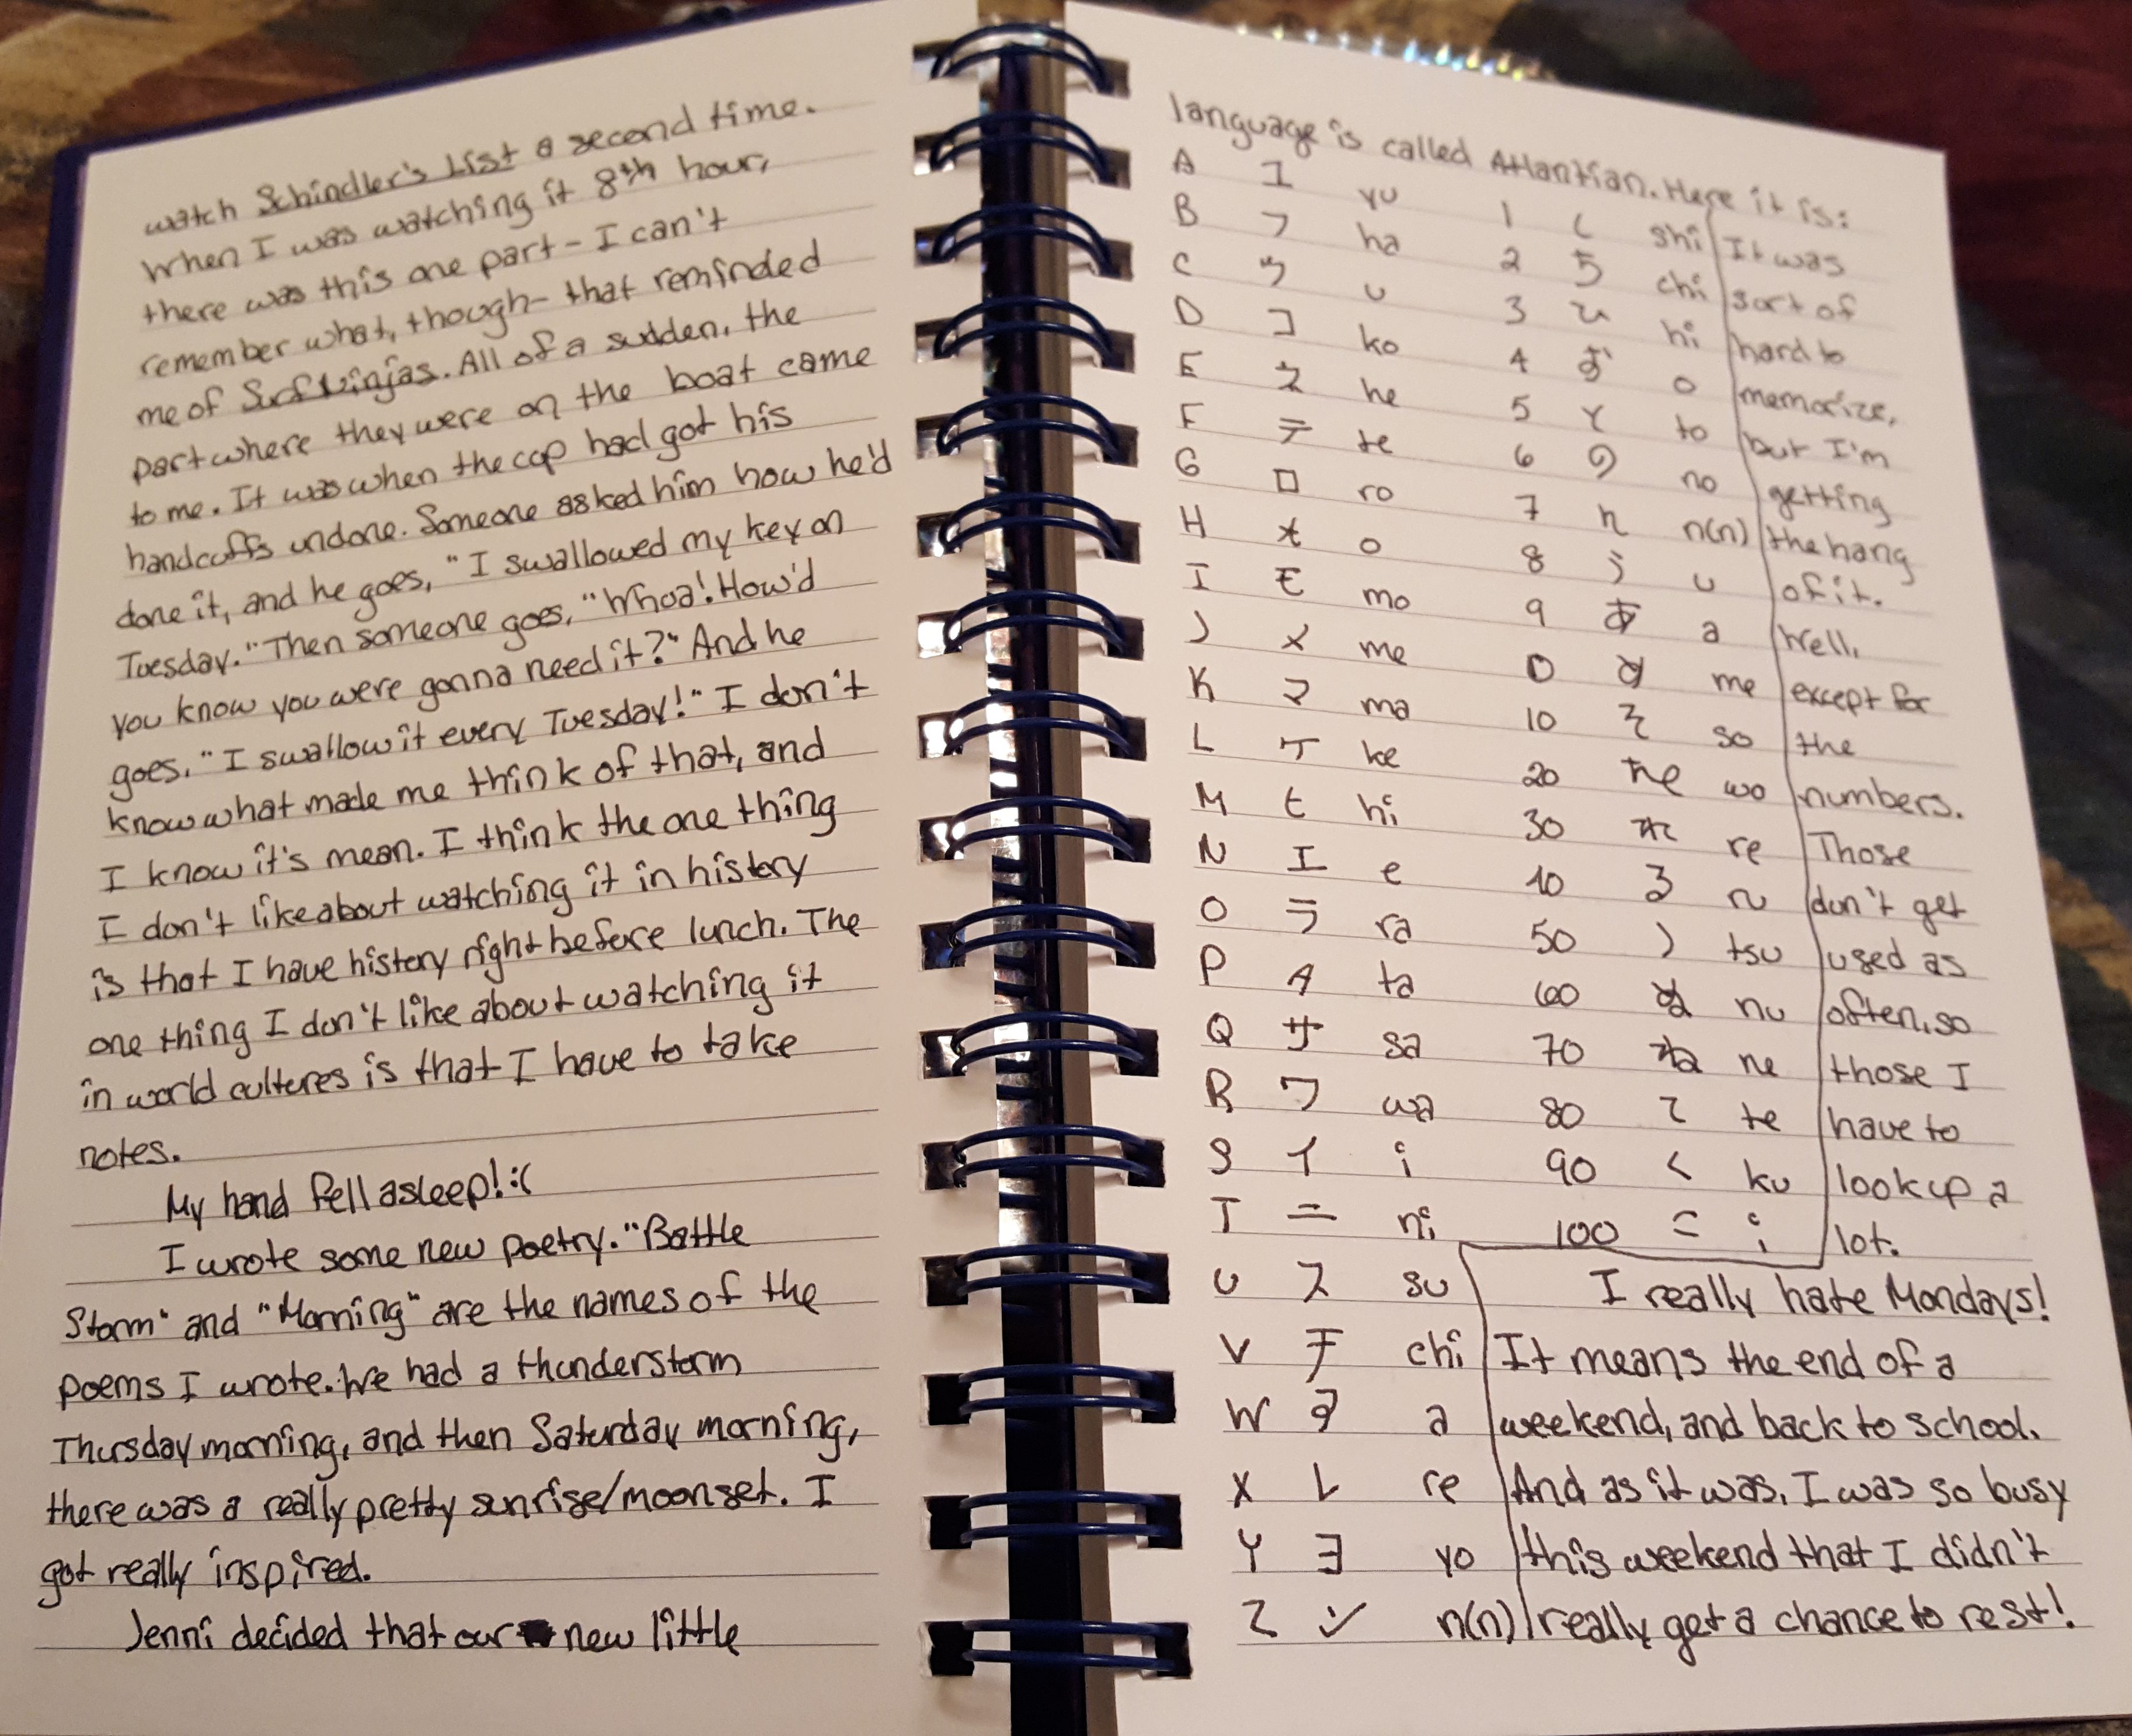 watch Schindler's List a second time.
When I was watching it 8th hour,
there was this one part - I can't
remember what, though - that reminded
me of Surf Ninjas. All of a sudden, the
part where they were on the boat came
to me. It was when the cop had got his
handcuffs undone. Someone asked him how he'd
done it, and he goes, "I swallowed my key on
Tuesday." Then someone goes, "Whoa! How'd
you know you were gonna need it?" And he
goes, "I swallow it every Tuesday!" I don't
know what made me think of that, and
I know it's mean. I think the one thing
I don't like about watching it in history
is that I have history right before lunch. The
one thing I don't like about watching it
in world cultures is that I have to take
notes.
My hand fell asleep! :(
I wrote some new poetry. "Battle
Storm" and "Morning" are the names of the
poems I wrote. We had a thunderstorm
Thursday morning, and then Saturday morning,
there was a really pretty sunrise/moonset. I
got really inspired.
Jenni decided that our new little
language is called Atlantian. Here it is:
A ユ yu 1 し shi It was
B フ ha 2 ち chi sort of
C ウ u 3 ひ hi hard to
D コ ko 4 お o memorize,
E he 5 と to but I'm
F テ te 6 の no getting
G ロ ro 7 ん n(n) the hang
H オ o 8 う u of it.
I モ mo 9 あ a Well,
J メ me 0 め me except for
K マ ma 10 そ so the
L ケ ke 20 を wo numbers.
M ヒ hi 30 れ re Those
N エ e 40 る ru don't get
O ラ ra 50 つ tsu used as
P タ ta 60 ぬ nu often, so
Q サ sa 70 ね ne those I
R ワ wa 80 て te have to
S イ i 90 く ku look up a
T ニ ni 100 i lot.
U ス su I really hate Mondays!
V チ chi It means the end of a
W ア a weekend, and back to school.
X レ re And as it was, I was so busy
Y ヨ yo this weekend that I didn't
Z ン n(n) really get a chance to rest!